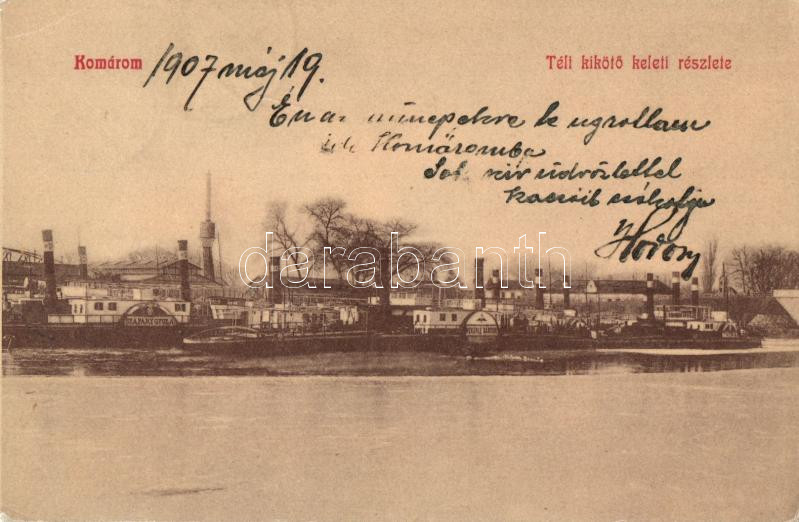 Komárom 1907 máj 19.
Téli kikötő keleti részlete
Én az ünnepekre le ugrottam
ide Komáromba
Sok szív üdvözlettel
kacsóit csókolja
darabanth.com